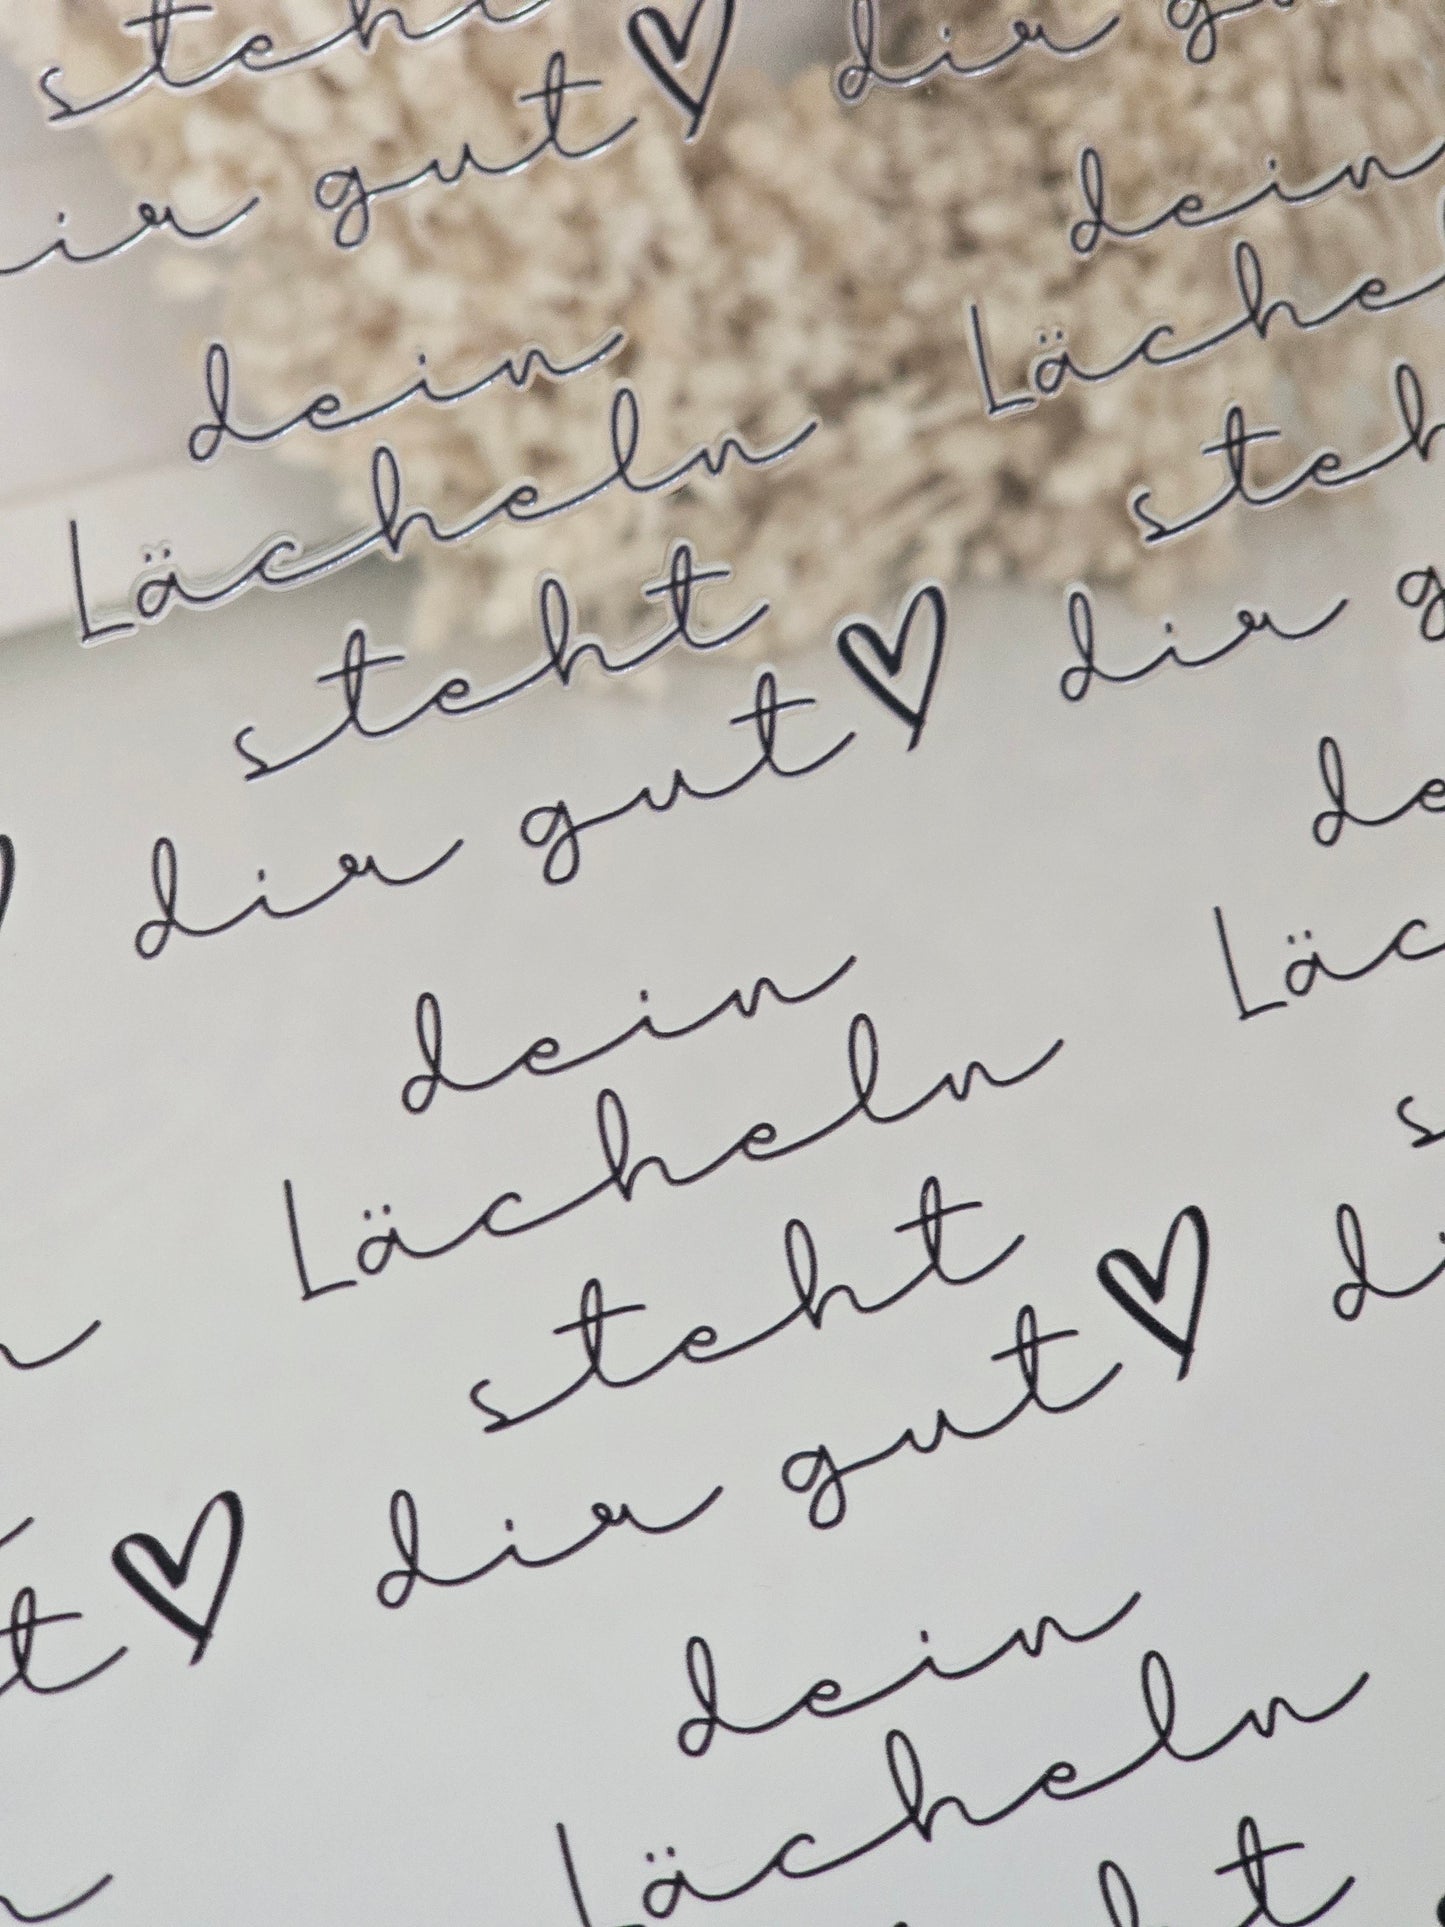 steht
dir gut
dir
dein
Lächeln
steht
dir gut
dein
Lächeln
steht
dir
dein
Lächeln
steht
dir gut
dein
Lächeln